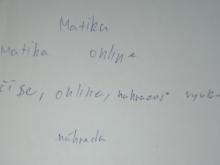 Matika
Matika online
číše, online, nahrazuj
náhrada